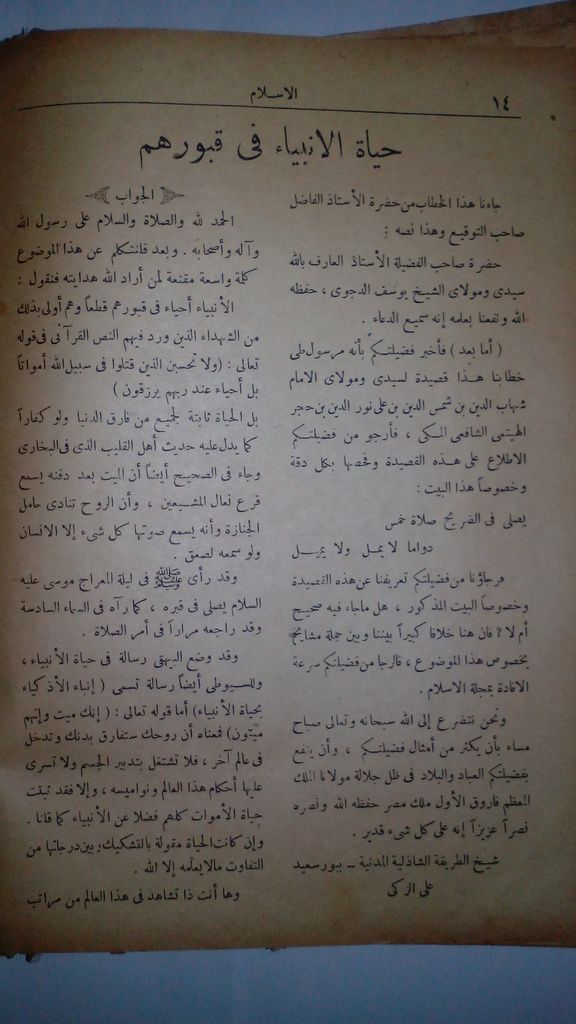 ١٤
الاسلام
حياة الانبياء فى قبورهم
جاءنا هذا الخطاب من حضرة الأستاذ الفاضل
صاحب التوقيع وهذا نصه :
حضرة صاحب الفضيلة الأستاذ العارف بالله
سيدى ومولاى الشيخ يوسف الدجوى ، حفظه
الله ونفعنا بعلمه إنه سميع الدعاء .
( أما بعد ) فأخبر فضيلتكم بأنه مرسول طى
خطابنا هذا قصيدة لسيدى ومولاى الامام
شهاب الدين بن شمس الدين بن على نور الدين بن حجر
الهيتمى الشافعى المكى ، فأرجو من فضيلتكم
الاطلاع على هذه القصيدة وفحصها بكل دقة
وخصوصاً هذا البيت :
يصلى فى الضريح صلاة خمس
دواما لا يمل ولا يميل
فرجاؤنا من فضيلتكم تعريفنا عن هذه القصيدة
وخصوصاً البيت المذكور ، هل ماجاء فيه صحيح
أم لا ? فان هنا خلافا كبيراً بيننا وبين جملة مشايخ
بخصوص هذا الموضوع ، فالرجا من فضيلتكم سرعة
الافادة بمجلة الاسلام .
ونحن نتضرع إلى الله سبحانه وتعالى صباح
مساء بأن يكثر من أمثال فضيلتكم ، وأن ينفع
بفضيلتكم العباد والبلاد فى ظل جلالة مولانا الملك
المعظم فاروق الأول ملك مصر حفظه الله ونصره
نصراً عزيزاً إنه على كل شىء قدير .
شيخ الطريقة الشاذلية المدنية – ببورسعيد
على الزكى
الجواب
الحمد لله والصلاة والسلام على رسول الله
وآله وأصحابه . وبعد فانتكلم عن هذا الموضوع
كلمة واسعة مقنعة لمن أراد الله هدايته فنقول :
الأنبياء أحياء فى قبورهم قطعاً وهم أولى بذلك
من الشهداء الذين ورد فيهم النص القرآنى فى قوله
تعالى : (ولا تحسبن الذين قتلوا فى سبيل الله أمواتاً
بل أحياء عند ربهم يرزقون )
بل الحياة ثابتة لجميع من فارق الدنيا ولو كفاراً
كما يدل عليه حديث أهل القليب الذى فى البخارى
وجاء فى الصحيح أيضاً أن الميت بعد دفنه يسمع
قرع نعال المشيعين ، وأن الروح تنادى حامل
الجنازة وأنه يسمع صوتها كل شىء إلا الانسان
ولو سمعه لصعق .
وقد رأى ﷺ فى ليلة المعراج موسى عليه
السلام يصلى فى قبره ، كما رآه فى السماء السادسة
وقد راجعه مراراً فى أمر الصلاة .
وقد وضع البيهقى رسالة فى حياة الأنبياء ،
وللسيوطى أيضاً رسالة تسمى ( إنباء الأذكياء
بحياة الأنبياء) أما قوله تعالى : ( إنك ميت وإنهم
ميتون) فمعناه أن روحك ستفارق بدنك وتدخل
فى عالم آخر ، فلا تشتغل بتدبير الجسم ولا تسرى
عليها أحكام هذا العالم ونواميسه ، وإلا فقد ثبتت
حياة الأموات كلهم فضلا عن الأنبياء كما قلنا .
وإن كانت الحياة مقولة بالتشكيك وبين درجاتها من
التفاوت مالا يعلمه إلا الله .
وها أنت ذا تشاهد فى هذا العالم من مراتب